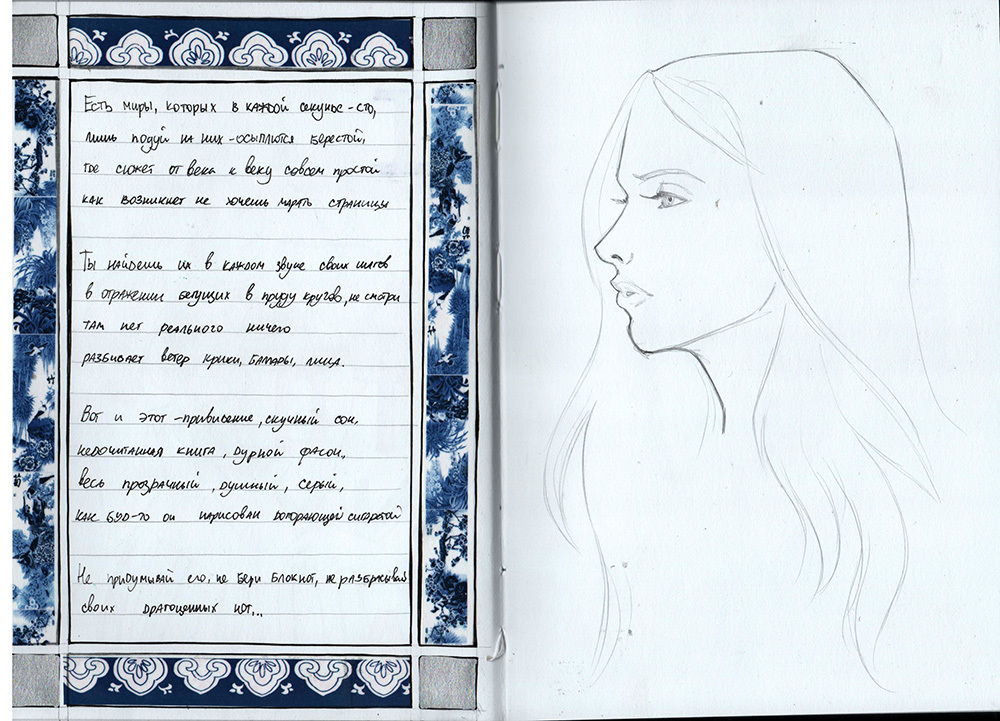 Есть миры, которых в каждой секунде - сто,
лишь подуй на них - осыплются берестой,
где сюжет от века к веку совсем простой
как возникнет не хочешь марать страницы
Ты найдешь их в каждом звуке своих шагов
в отражении бегущих в пруду кругов, не смотри
там нет реального ничего
разбивает ветер крики, лица.
Вот и этот - привидение, скучный сон,
недочитанная книга, дурной фасон,
весь прозрачный, душный, серый,
как буд-то он нарисован догорающей сигаретой
Не придумывай его, не бери блокнот, не разбрасывай
своих драгоценных нот...